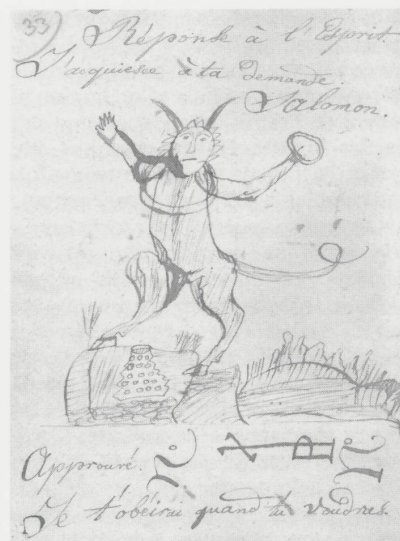 33
Réponse à l'Esprit.
J'acquiesce à ta demande
Salomon.
Approuvé.
Je t'obéirai quand tu voudras.